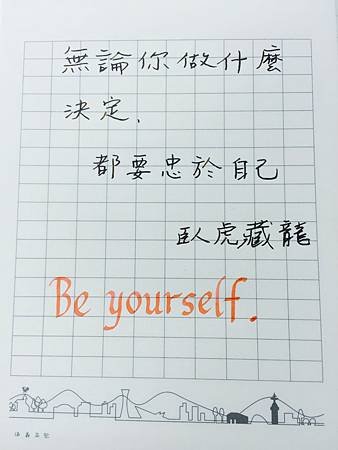 無論你做什麼
決定,
都要忠於自己
臥虎藏龍
Be yourself.